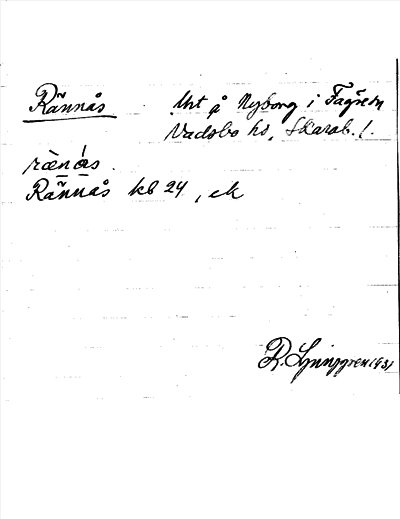 Rännås
Urt å Nyborg i Fägre sn
Vadsbo hd, Skarab. l.
rænås.
Rännås kb 24, ek
R. Ljunggren 1931